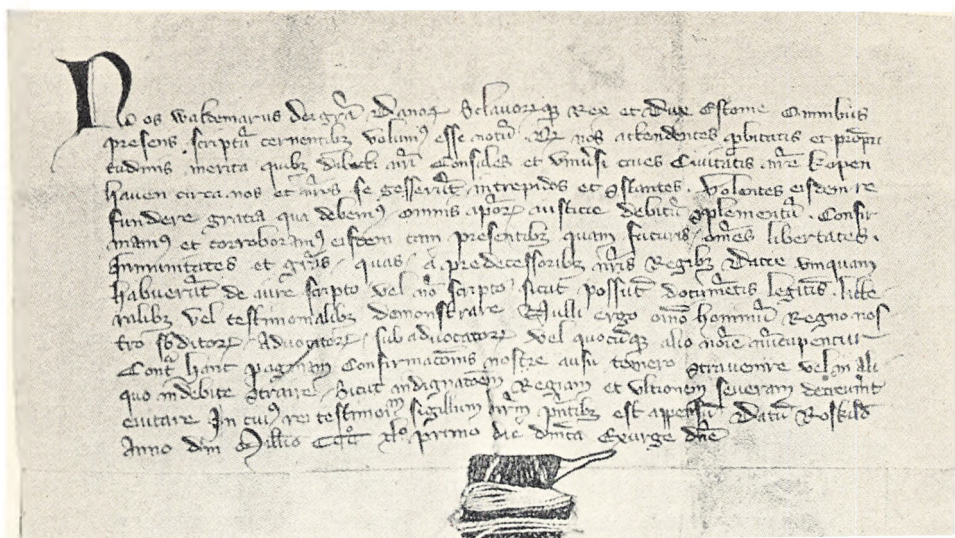 Nos waldemarus dei gr̄a danoꝝ Sclauoꝝqꝫ Rex et dux Estonie Omnibus
presens scriptū cernentibꝫ volumꝰ esse notū Qd nos attendentes ꝓbitatis et promp
tudinis merita quibꝫ dilecti nr̄i Consules et vniu̇si ciues Ciuitatis nr̄e Kopen
hauen circa nos et nr̄os se gesserūt intrepidos et ꝯstantes. Volentes eisdem re
fundere gratia qua debemꝰ omnis iusticie debitū ꝯplementū. Confir
mamꝰ et corroboramꝰ eisdem tam presentibꝫ quam futuris om̄es libertates.
Inmunitates et gr̄as quas a predecessoribꝫ nr̄is Regibꝫ dacie vnquam
habuerūt de iure scripto vel nō scripto sicut possūt documētis legitīs litte
ralibꝫ vel testimonialibꝫ demonstrare Nulli ergo om̄o hominū Regno nos
tro sb̄ditoꝝ Aduocatoꝝ subaduocatoꝝ vel quocūqꝫ alio noīe nūcupentur
Cont̄ hanc paginam Confirmacōnis nostre ausu temero ꝯtrauenire vel in ali
quo indebite ꝯtraire sicut indignacōem Regiam et vltionem seueram decreuīnt
euitare In cuiꝰ rei testimoīm sigillum nr̄m pn̄tibꝫ est appensū Datū Roskild̄
Anno dn̄i Millīo CCCͦ xlͦ primo die dn̄ica Exurge dn̄e